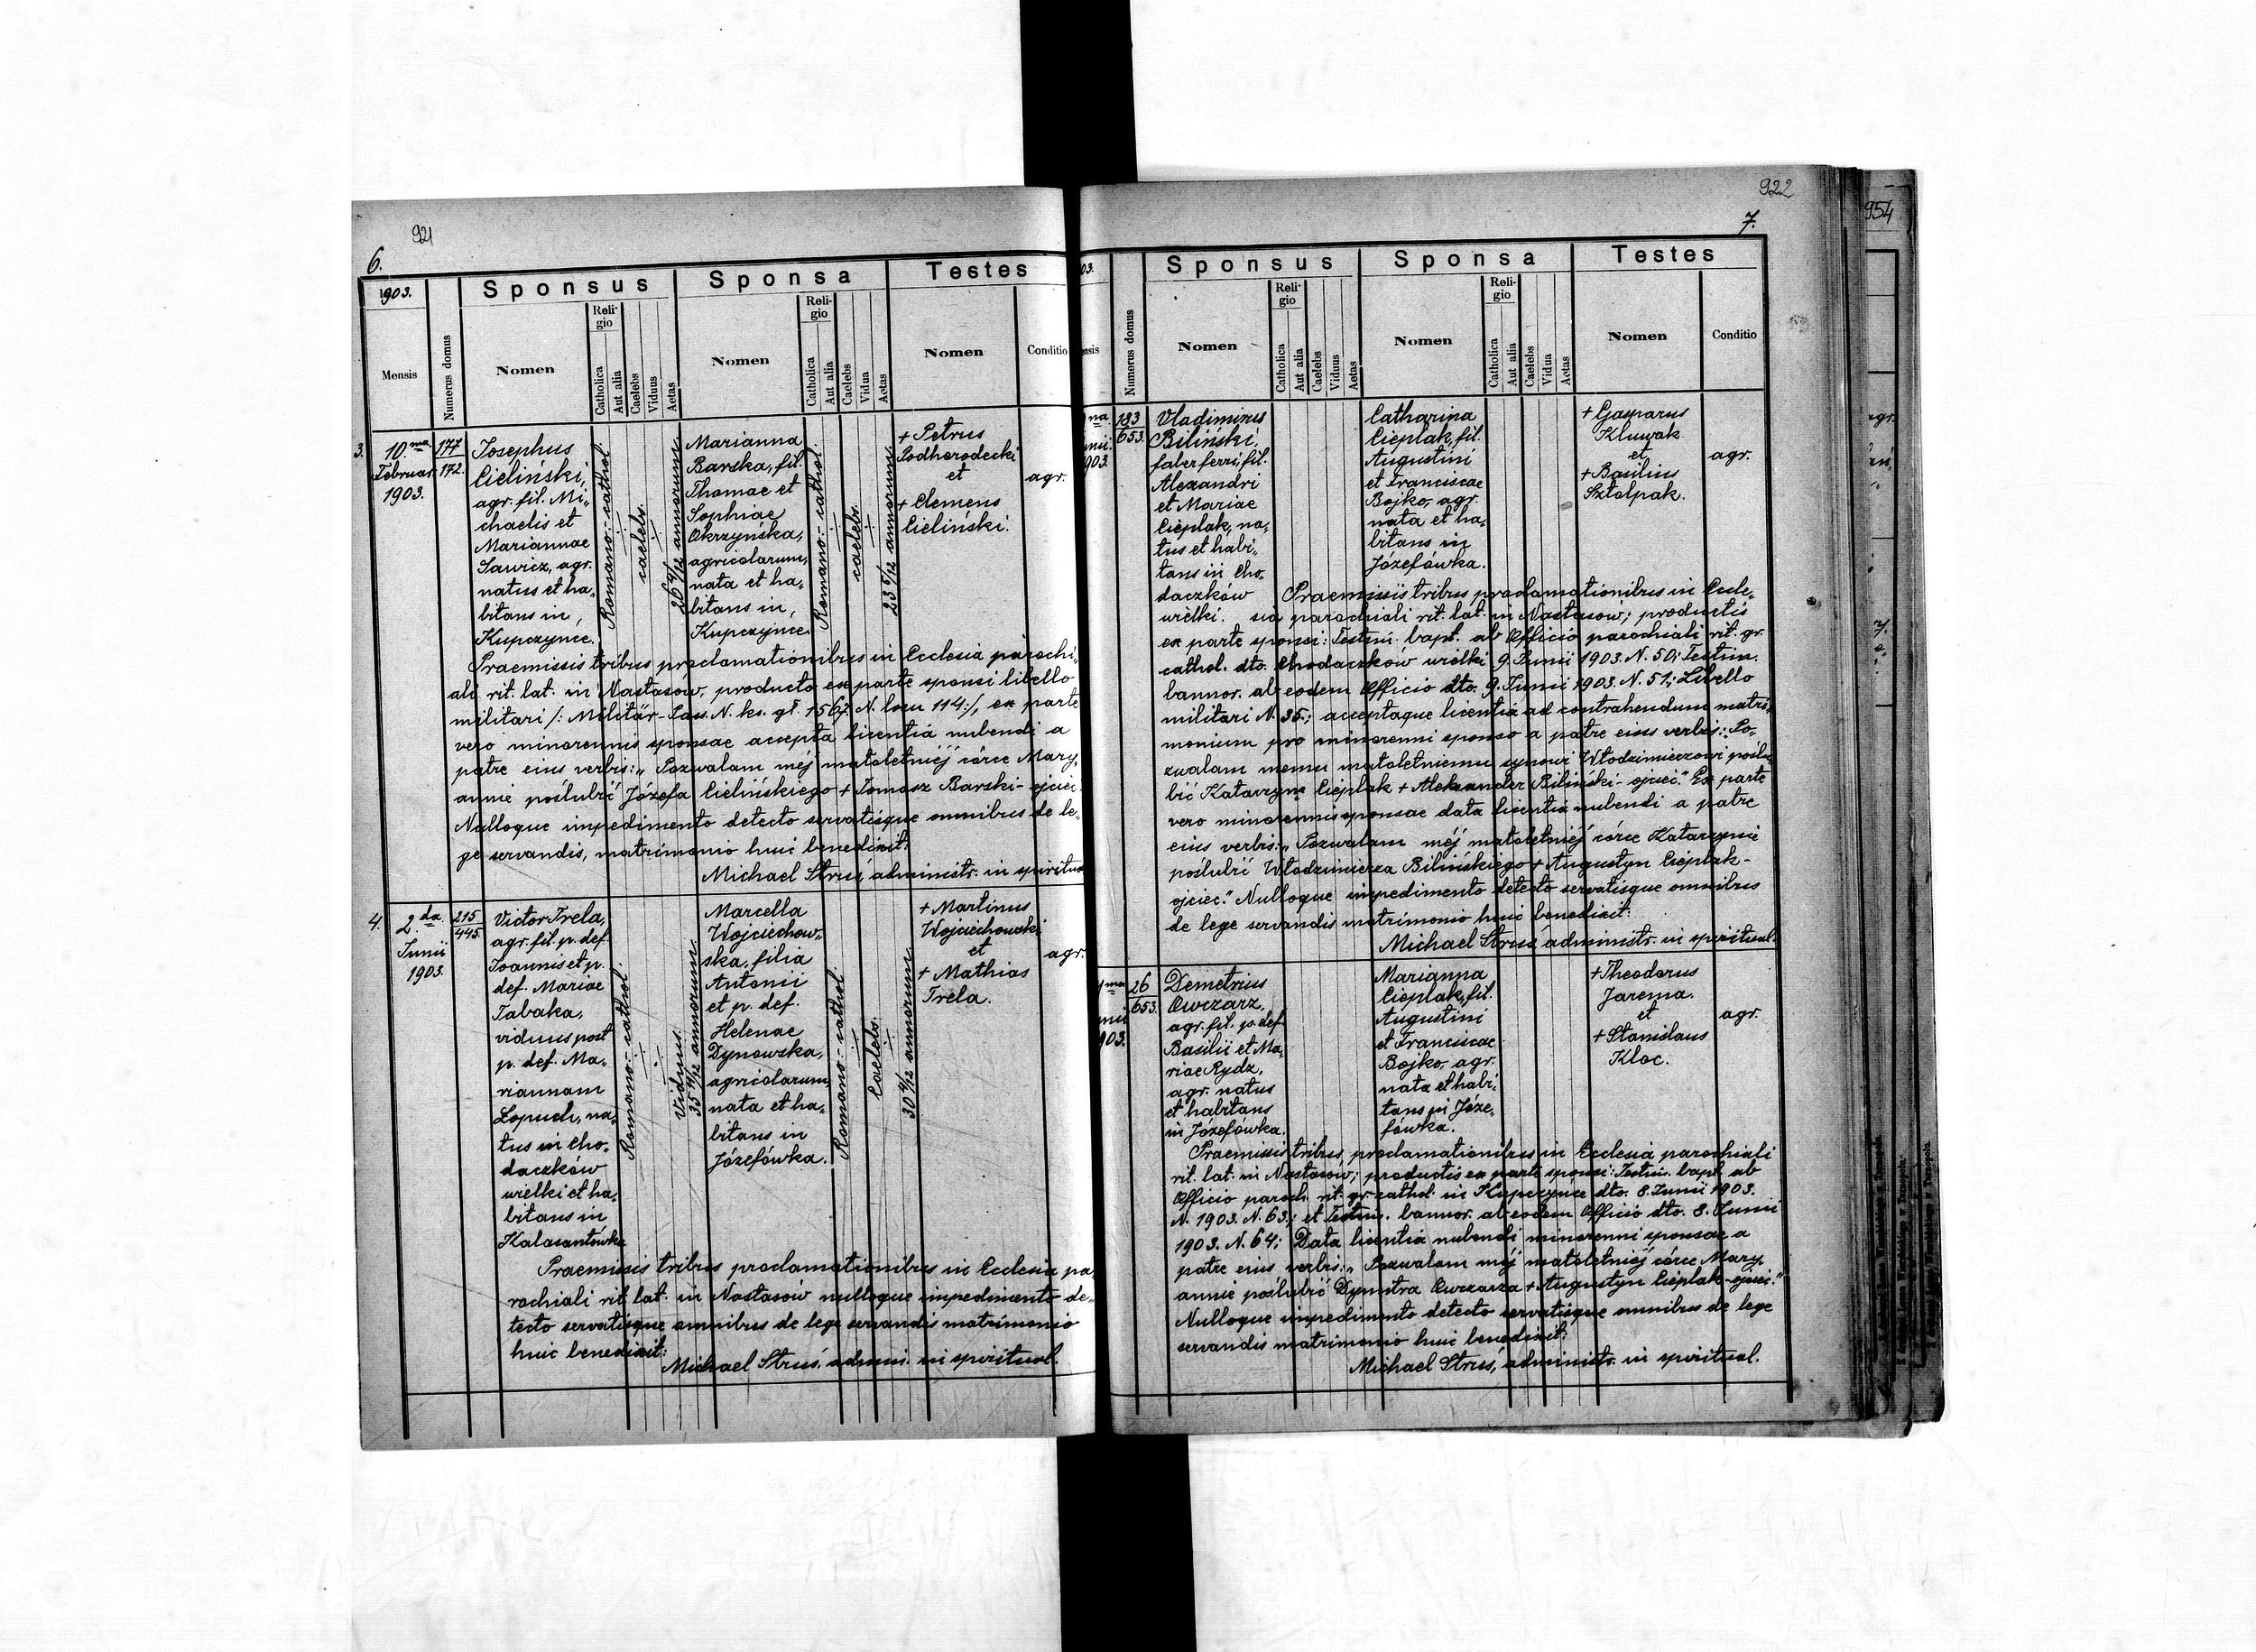 921
6.
1903.
Sponsus
Sponsa
Testes
Mensis
Numerus domus
Nomen
Religio
Catholica
Aut alia
Caelebs
Viduus
Aetas
Nomen
Religio
Catholica
Aut alia
Caelebs
Vidua
Aetas
Nomen
Conditio
3.
10.ma
Februar.
1903.
177
172.
Josephus
Cieliński,
agr. fil. Mi„
chaelis et
Mariannae
Sawicz, agr.
natus et ha„
bitans in
Kupczyńce.
Romano-cathol.
caelebs.
26 4/12 annorum
Marianna
Barska, fil.
Thomae et
Sophiae
Okrzyńska,
agricolarum,
nata et ha„
bitans in
Kupczyńce.
Romano-cathol.
caelebs.
23 5/12 annorum
+ Petrus
Podhorodecki
et
+ Clemens
Cieliński.
agr.
Praemissis tribus proclamationibus in Ecclesia parochi„
ali rit. lat. in Nastasów, producto ex parte sponsi libello
militari /: Militär-Pass. N. ks. gł. 1567. N. losu 114:/, ex parte
vero minorennis sponsae accepta licentiá nubendi a
patre eius verbis: „Pozwalam méj małoletniéj córce Mary„
annie poślubić Józefa Cielińskiego + Tomasz Barski - ojciec.
Nulloque impedimento detecto servatisque omnibus de le„
ge servandis, matrimonio huic benedixit:
Michael Struś administr. in spiritual.
4.
2.da
Junii
1903.
215
445.
Victor Trela,
agr. fil. p. def.
Joannis et p.
def. Mariae
Tabaka,
viduus post
p. def. Ma„
riannam
Łopuch, na„
tus in Cho„
daczków
wielki et ha„
bitans in
Kalasantówka
Romano-cathol.
Viduus.
35 11/12 annorum
Marcella
Wojciechow„
ska, filia
Antonii
et p. def.
Helenae
Dynowska,
agricolarum,
nata et ha„
bitans in
Józefówka.
Romano-cathol.
Caelebs.
+ Martinus
Wojciechowski
et
+ Mathias
Trela.
agr.
Praemissis tribus proclamationibus in Ecclesia pa„
rochiali rit. lat. in Nastasów nulloque impedimento de„
tecto servatisque omnibus de lege servandis matrimonio
huic benedixit:
Michael Struś, admin. in spiritual.
922
7.
Sponsus
Sponsa
Testes
Numerus domus
Nomen
Religio
Catholica
Aut alia
Caelebs
Viduus
Aetas
Nomen
Religio
Catholica
Aut alia
Caelebs
Vidua
Aetas
Nomen
Conditio
183
653.
Vladimirus
Biliński,
faber ferri, fil.
Alexandri
et Mariae
Cieplak, na„
tus et habi„
tans in Cho„
daczków
wielki.
Catharina
Cieplak, fil.
Augustini
et Franciscae
Bojko, agr.
nata et ha„
bitans in
Józefówka.
+ Gasparus
Kluwak
et
+ Basilius
Sztolpak.
agr.
Praemissis tribus proclamationibus in Eccle„
sia parochiali rit. lat. in Nastasów; productis
ex parte sponsi: Testim. bapt. ab Officio parochiali rit. gr.
cathol. dto. Chodaczków wielki 9. Junii 1903. N. 50; Testim.
bannor. ab eodem Officio dto. 9. Junii 1903. N. 51; Libello
militari N. 35; acceptaque licentiá ad contrahendum matri„
monium pro minorenni sponso a patre eius verbis: „Po„
zwalam memu małoletniemu synowi Włodzimierzowi poślu„
bić Katarzynę Cieplak + Aleksander Biliński - ojciec." Ex parte
vero minorennis sponsae data licentiá nubendi a patre
eius verbis: „Pozwalam méj małoletniéj córce Katarzynie
poślubić Włodzimierza Bilińskiego + Augustyn Cieplak -
ojciec." Nulloque impedimento detecto servatisque omnibus
de lege servandis matrimonio huic benedixit:
Michael Struś administr. in spiritual.
26
653.
Demetrius
Owczarz,
agr. fil. p. def.
Basilii et Ma„
riae Rydz,
agr. natus
et habitans
in Józefówka.
Marianna
Cieplak, fil.
Augustini
et Franciscae
Bojko, agr.
nata et habi„
tans in Józe„
fówka.
+ Theodorus
Jarema.
et
+ Stanislaus
Kloc.
agr.
Praemissis tribus proclamationibus in Ecclesia parochiali
rit. lat. in Nastasów; productis ex parte sponsi: Testim. bapt. ab
Officio paroch. rit. gr. cathol. in Kupczyńce dto. 8. Junii 1903.
N. 1903. N. 63; et Testim. bannor. ab eodem Officio dto. 8. Junii
1903. N. 64; Data licentia nubendi minorenni sponsae a
patre eius verbis: „Pozwalam méj małoletniéj córce Mary„
annie poślubić Dymitra Owczarza + Augustyn Cieplak - ojciec."
Nulloque impedimento detecto servatisque omnibus de lege
servandis matrimonio huic benedixit:
Michael Struś, administr. in spiritual.
954